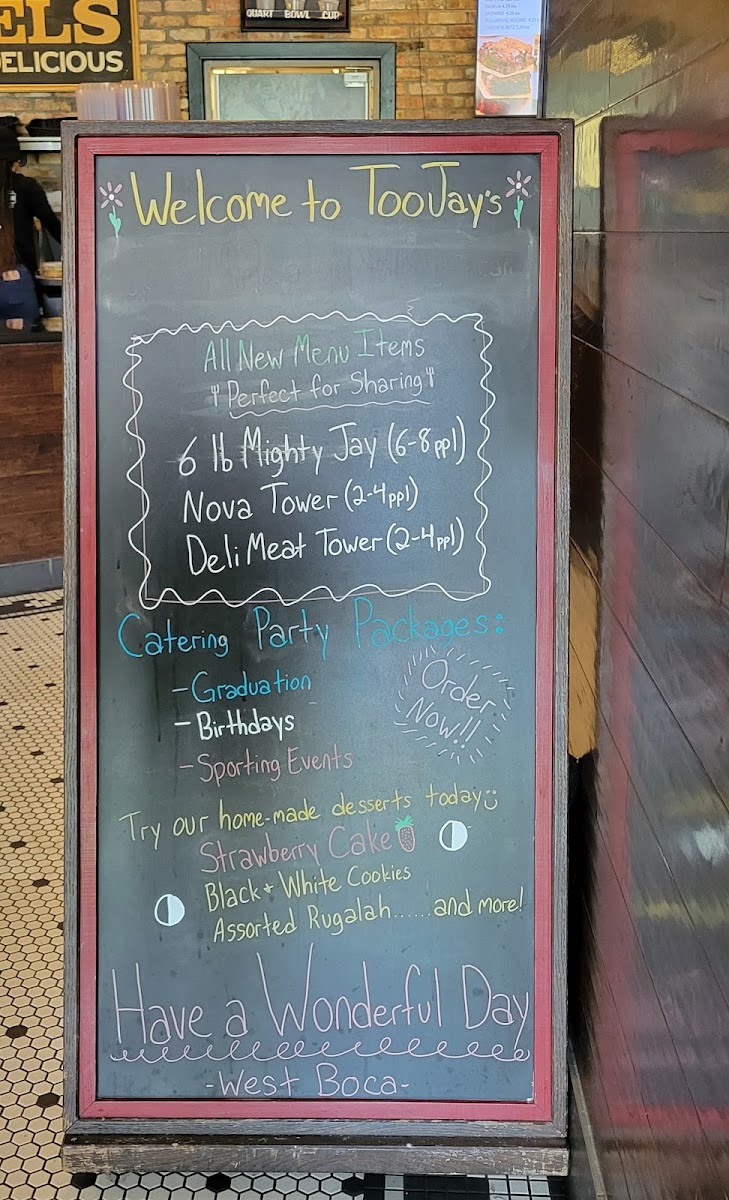 ELS
DELICIOUS
QUART BOWL CUP
Welcome to TooJay's
All New Menu Items
Perfect for Sharing
6 lb Mighty Jay (6-8 ppl)
Nova Tower (2-4 ppl)
Deli Meat Tower (2-4 ppl)
Catering Party Packages:
- Graduation
- Birthdays
- Sporting Events
Order
Now!!
Try our home-made desserts today
Strawberry Cake
Black + White Cookies
Assorted Rugalah......and more!
Have a Wonderful Day
-West Boca-